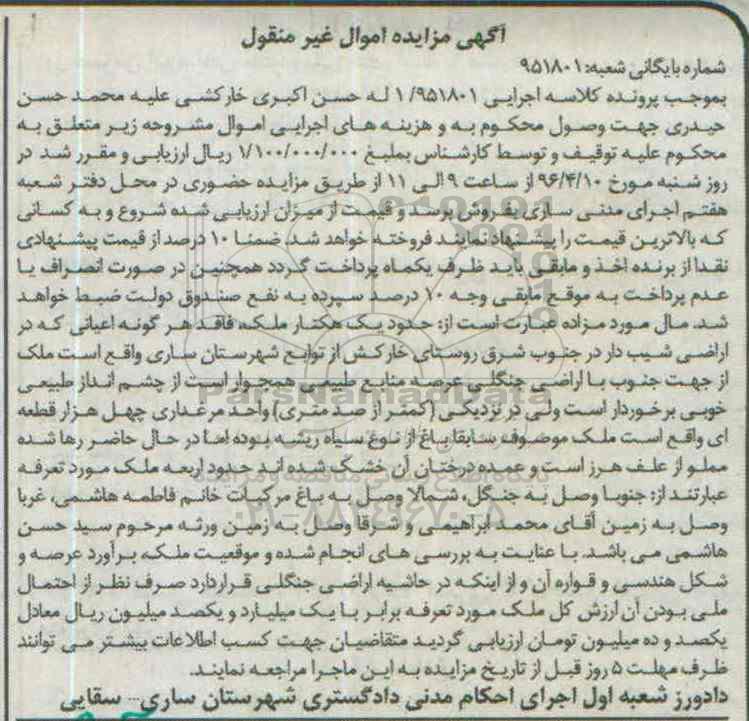 آگهی مزایده اموال غیر منقول
شماره بایگانی شعبه: ۹۵۱۸۰۱
بموجب پرونده کلاسه اجرایی ۱/۹۵۱۸۰۱ له حسن اکبری خارکشی علیه محمد حسن
حیدری جهت وصول محکوم به و هزینه های اجرایی اموال مشروحه زیر متعلق به
محکوم علیه توقیف و توسط کارشناس بمبلیغ ۱/۱۰۰/۰۰۰/۰۰۰ ریال ارزیابی و مقرر شد در
روز شنبه مورخ ۹۶/۴/۱۰ از ساعت ۹ الی ۱۱ از طریق مزایده حضوری در محل دفتر شعبه
هفتم اجرای مدنی ساری بفروش برسد و قیمت از میزان ارزیابی شده شروع و به کسانی
که بالاترین قیمت را پیشنهاد نمایند فروخته خواهد شد. ضمنا ۱۰ درصد از قیمت پیشنهادی
نقدا از برنده اخذ و مابقی باید ظرف یکماه پرداخت گردد همچنین در صورت انصراف یا
عدم پرداخت به موقع مابقی وجه ۱۰ درصد سپرده به نفع صندوق دولت ضبط خواهد
شد. مال مورد مزاده عبارت است از: حدود یک هکتار ملک، فاقد هر گونه اعیانی که در
اراضی شیب دار در جنوب شرق روستای خارکش از توابع شهرستان ساری واقع است ملک
از جهت جنوب با اراضی جنگلی عرصه منابع طبیعی همجوار است از چشم انداز طبیعی
خوبی برخوردار است ولی در نزدیکی (کمتر از صد متری) واحد مرغداری چهل هزار قطعه
ای واقع است ملک موصوف سابقا باغ از نوع سیاه ریشه بوده اما در حال حاضر رها شده
مملو از علف هرز است و عمده درختان آن خشک شده اند حدود اربعه ملک مورد تعرفه
عبارتند از: جنوبا وصل به جنگل، شمالا وصل به باغ مرکبات خانم فاطمه هاشمی، غربا
وصل به زمین آقای محمد ابراهیمی و شرقا وصل به زمین ورثه مرحوم سید حسن
هاشمی می باشد. با عنایت به بررسی های انجام شده و موقعیت ملک، برآورد عرصه و
شکل هندسی و قواره آن و از اینکه در حاشیه اراضی جنگلی قراردارد صرف نظر از احتمال
ملی بودن آن ارزش کل ملک مورد تعرفه برابر با یک میلیارد و یکصد میلیون ریال معادل
یکصد و ده میلیون تومان ارزیابی گردید متقاضیان جهت کسب اطلاعات بیشتر می توانند
ظرف مهلت ۵ روز قبل از تاریخ مزایده به این ماجرا مراجعه نمایند.
دادورز شعبه اول اجرای احکام مدنی دادگستری شهرستان ساری... سقایی
ParsNamadData
۰۲۱-۸۸۳۴۹۶۷۰-۵